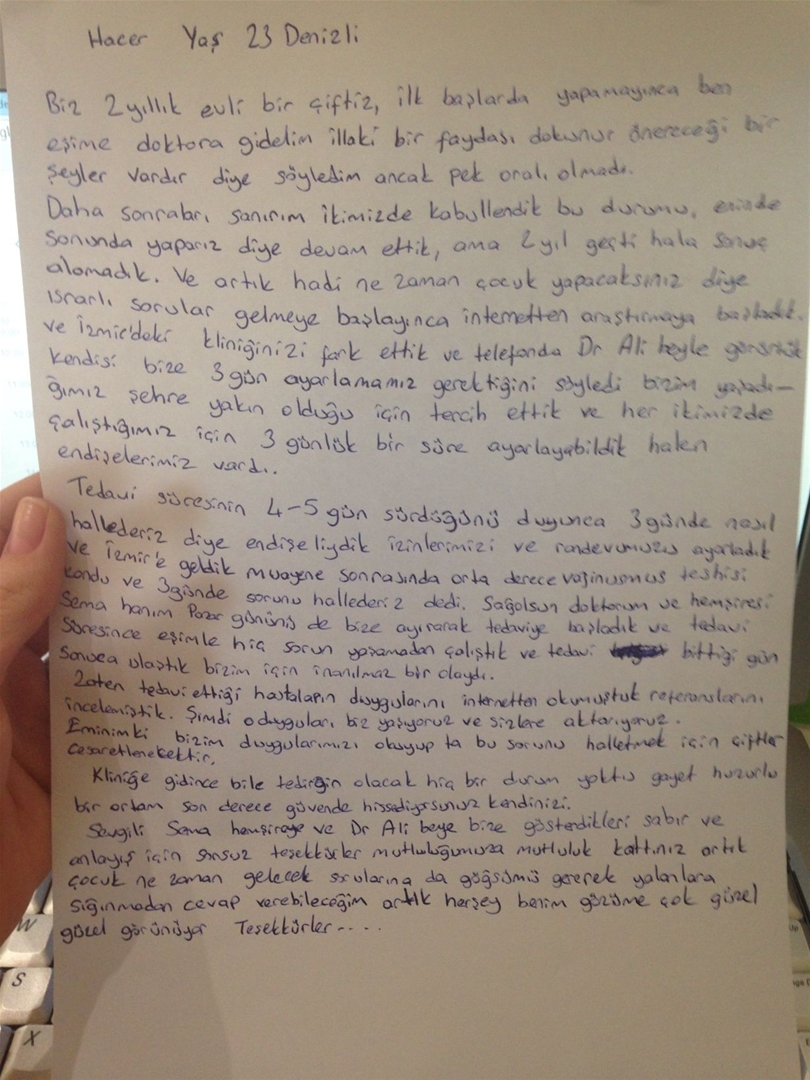 Hacer Yaş 23 Denizli
Biz 2 yıllık evli bir çiftiz, ilk başlarda yapamayınca ben
eşime doktora gidelim illaki bir faydası dokunur önereceği bir
şeyler vardır diye söyledim ancak pek oralı olmadı.
Daha sonraları sanırım ikimizde kabullendik bu durumu, eninde
sonunda yaparız diye devam ettik, ama 2 yıl geçti hala sonuç
alamadık. Ve artık hadi ne zaman çocuk yapacaksınız diye
ısrarlı sorular gelmeye başlayınca internetten araştırmaya başladık.
ve İzmir'deki kliniğinizi fark ettik ve telefonda Dr Ali beyle görüştük
kendisi bize 3 gün ayarlamamız gerektiğini söyledi bizim yaşadı-
ğımız şehre yakın olduğu için tercih ettik ve her ikimizde
çalıştığımız için 3 günlük bir süre ayarlayabildik halen
endişelerimiz vardı..
Tedavi süresinin 4-5 gün sürdüğünü duyunca 3 günde nasıl
hallederiz diye endişeliydik izinlerimizi ve randevumuzu ayarladık
ve İzmir'e geldik muayene sonrasında orta derece vajinusmus teshisi
kondu ve 3 günde sorunu hallederiz dedi. Sağolsun doktorum ve hemşiresi
Sema hanım Pazar gününü de bize ayırarak tedaviye başladık ve tedavi
süresince eşimle hiç sorun yaşamadan çalıştık ve tedavi bittiği gün
sonuca ulaştık bizim için inanılmaz bir olaydı.
Zaten tedavi ettiği hastaların duygularını internetten okumuştuk referanslarını
incelemiştik. Şimdi o duyguları biz yaşıyoruz ve sizlere aktarıyoruz.
Eminimki bizim duygularımızı okuyup ta bu sorunu halletmek için çiftler
cesaretlenecektir,
Kliniğe gidince bile tedirgin olacak hiç bir durum yoktu gayet huzurlu
bir ortam son derece güvende hissediyorsunuz kendinizi.
Sevgili Sema hemşireye ve Dr Ali beye bize gösterdikleri sabır ve
anlayış için sonsuz teşekkürler mutluluğumuza mutluluk kattınız artık
çocuk ne zaman gelecek sorularına da göğsümü gererek yalanlara
sığınmadan cevap verebileceğim artık herşey benim gözüme çok güzel
güzel görünüyor Teşekkürler....
W
S
X